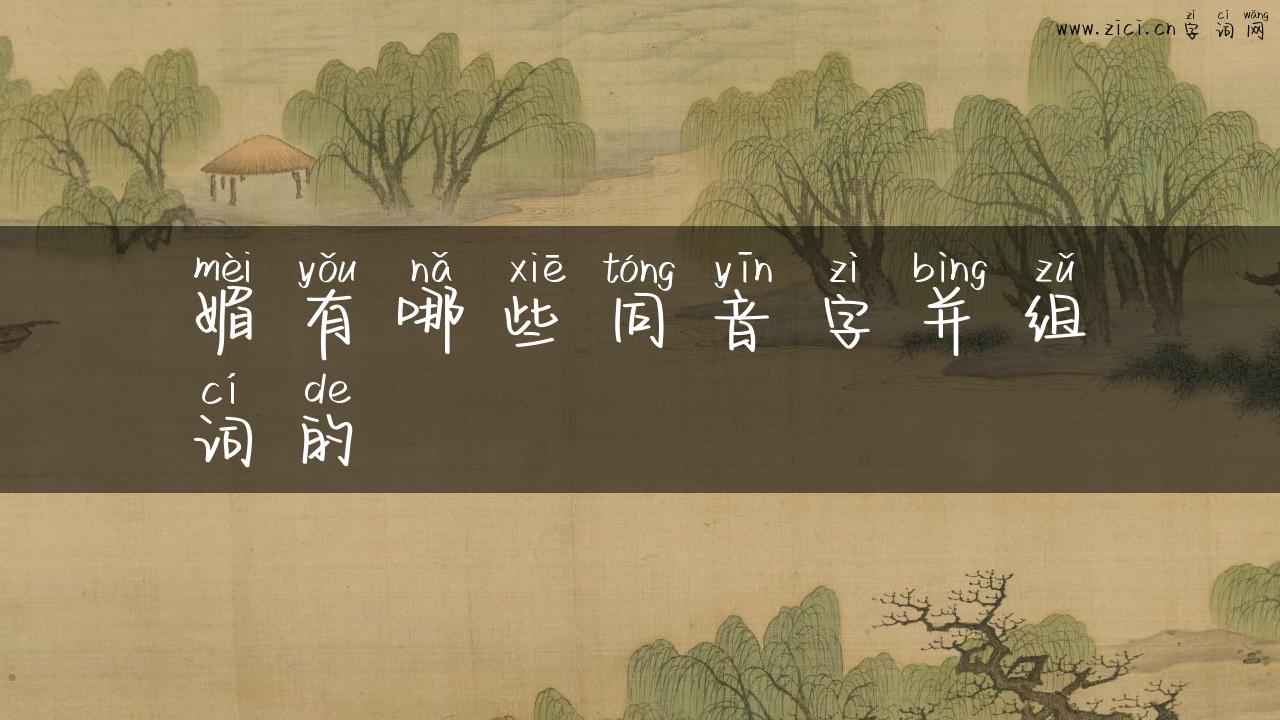 zì cí wǎng
www.zīcī.cn 字词网
mèi yǒu nǎ xiē tóng yīn zì bìng zǔ
媚有哪些同音字并组
cí de
词的